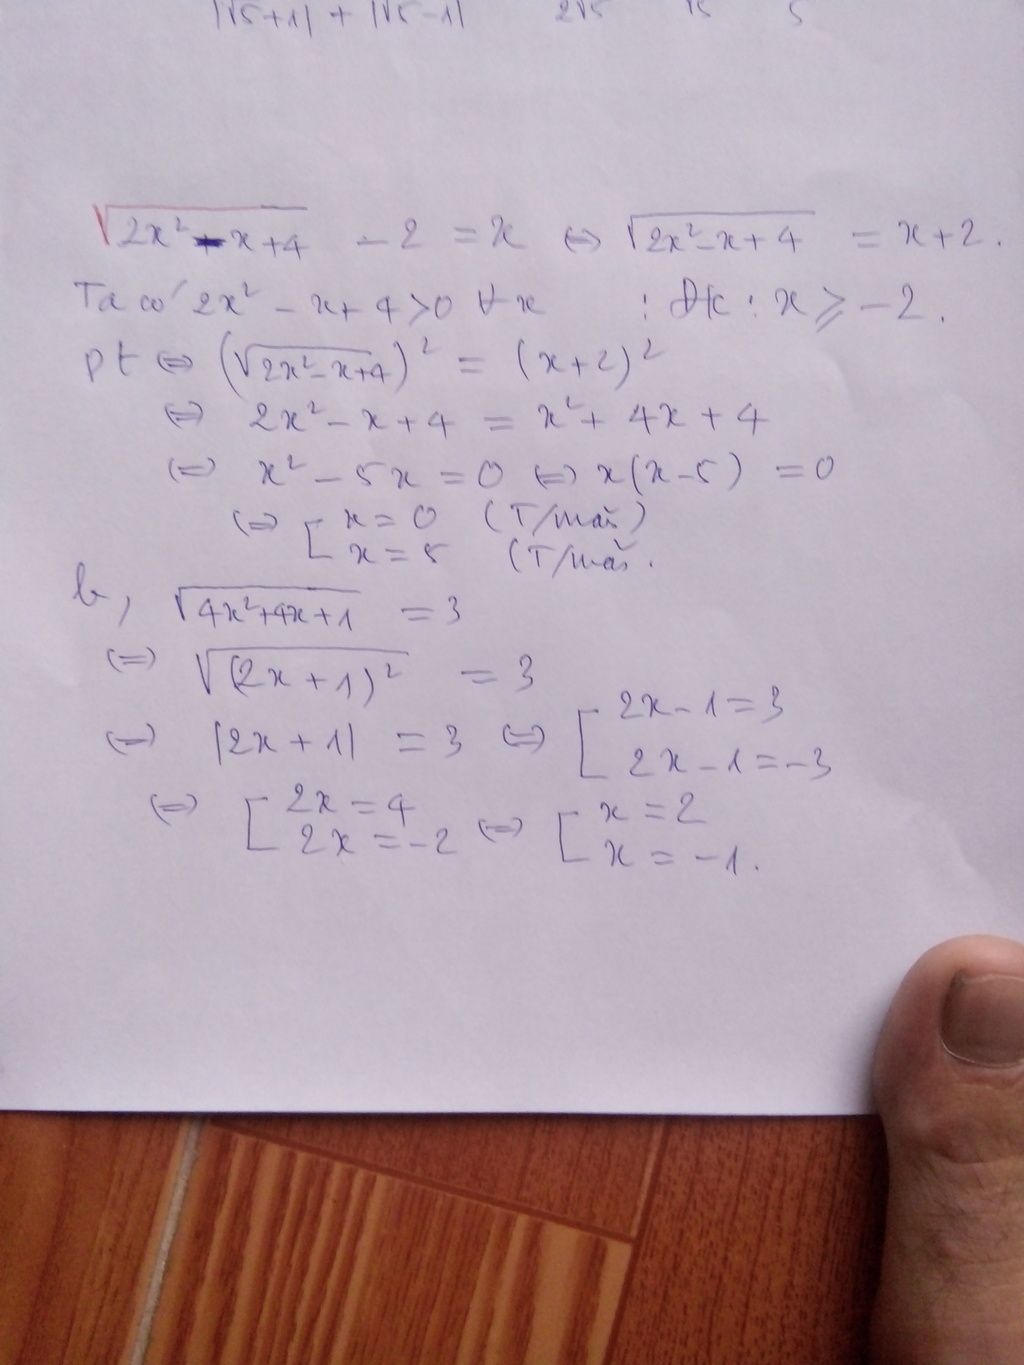 |√5+1| + |√5-1| 2√5 √5 5
√(2x² - x+4) - 2 = x ⇔ √(2x²-x+4) = x+2.
Ta có 2x² - x+4>0 ∀x : ĐK : x ≥ -2.
pt ⇔ (√(2x²-x+4))² = (x+2)²
⇔ 2x² - x+4 = x² + 4x + 4
⇔ x² - 5x = 0 ⇔ x(x-5) = 0
⇔ [ x = 0 (T/mãn)
x = 5 (T/mãn.
b, √(4x²+4x+1) = 3
⇔ √((2x+1)²) = 3
⇔ |2x+1| = 3 ⇔ [ 2x-1=3
2x-1=-3
⇔ [ 2x=4 ⇔ [ x=2
2x=-2 x=-1.